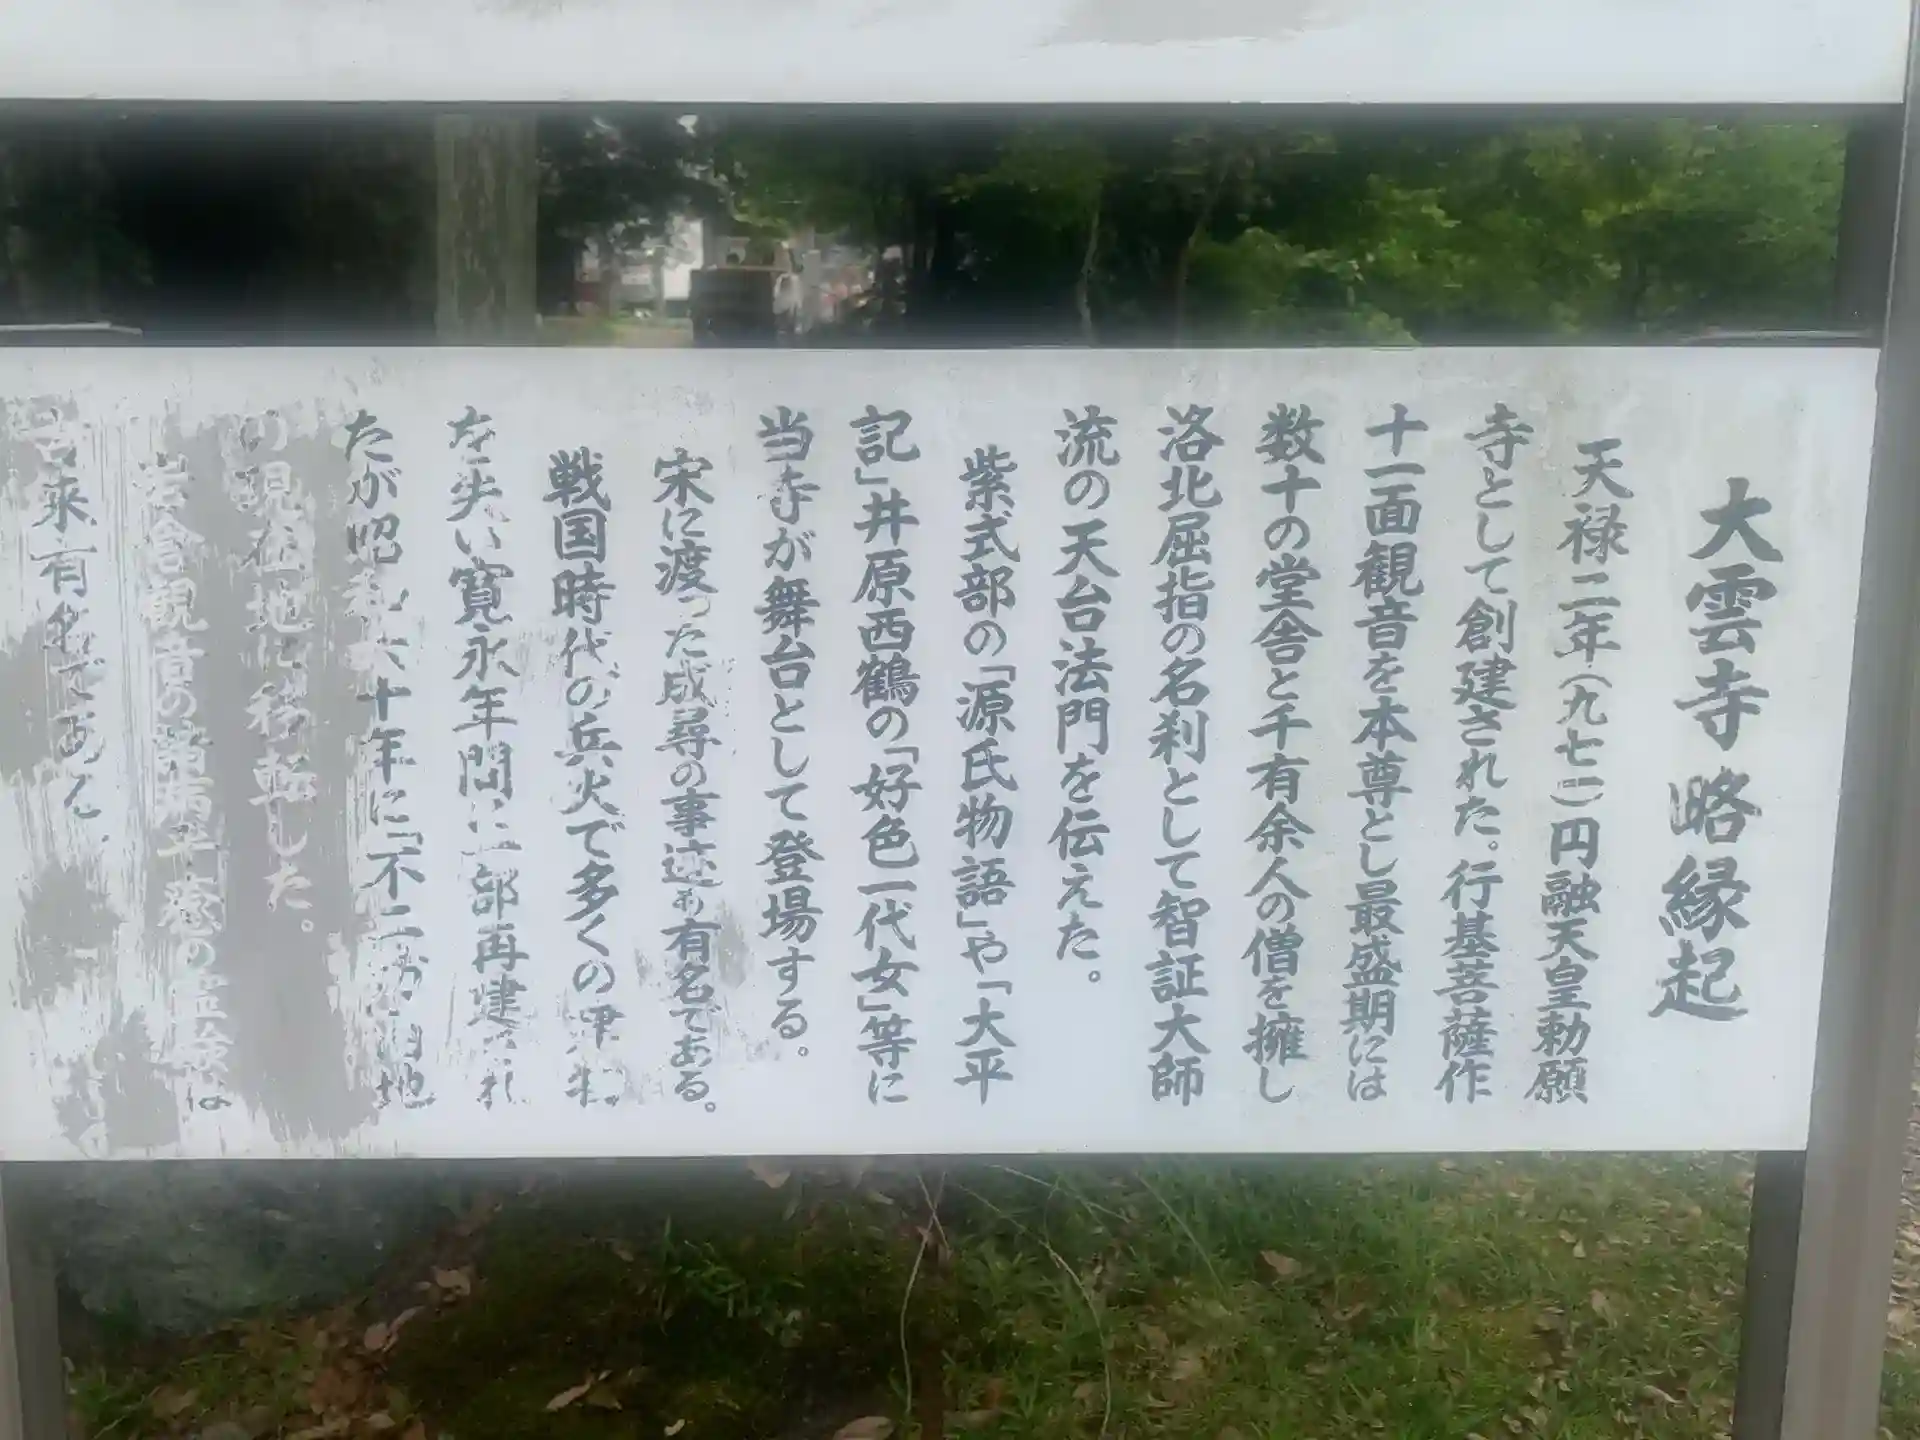 大雲寺略縁起
天禄二年(九七一)円融天皇勅願
寺として創建された。行基菩薩作
十一面観音を本尊とし最盛期には
数十の堂舎と千有余人の僧を擁し
洛北屈指の名刹として智証大師
流の天台法門を伝えた。
紫式部の「源氏物語」や「大平
記」井原西鶴の「好色一代女」等に
当寺が舞台として登場する。
宋に渡った成尋の事迹も有名である。
戦国時代の兵火で多くの
を失い寛永年間に一部再建され
たが昭和六十年に「不二
の現在地に移転した。
岩倉観音の
古来有名である